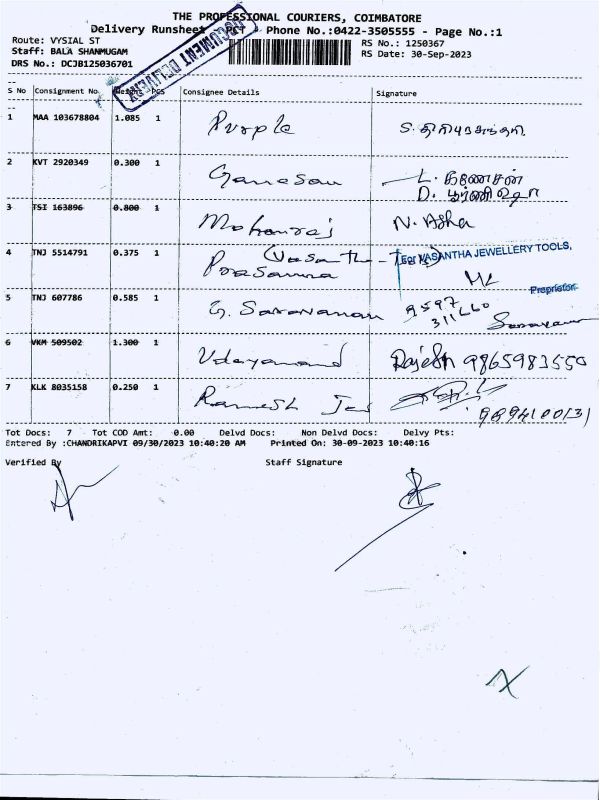 THE PROFESSIONAL COURIERS, COIMBATORE
Delivery Runsheet - PCT - Phone No.:0422-3505555 - Page No.:1
Route: VYSIAL ST
RS No.: 1250367
Staff: BALA SHANMUGAM
RS Date: 30-Sep-2023
DRS No.: DCJB125036701
DOCUMENT DELIVERY
S No Consignment No. Weight PCS Consignee Details Signature
1 MAA 103678804 1.085 1 Purple
2 KVT 2920349 0.300 1 Ganesan L. கணேசன்
3 TSI 163896 0.800 1 Mohanraj N. Asha
4 TNJ 5514791 0.375 1 Prasanna (Vasantha
For VASANTHA JEWELLERY TOOLS,
Proprietor
5 TNJ 607786 0.585 1 G. Saravanan 9597
311660
6 VKM 509502 1.300 1 Udayanand Rajesh 9865983550
7 KLK 8035158 0.250 1 Ramesh
9894100131
Tot Docs: 7 Tot COD Amt: 0.00 Delvd Docs: Non Delvd Docs: Delvy Pts:
Entered By :CHANDRIKAPVI 09/30/2023 10:40:20 AM Printed On: 30-09-2023 10:40:16
Verified By Staff Signature